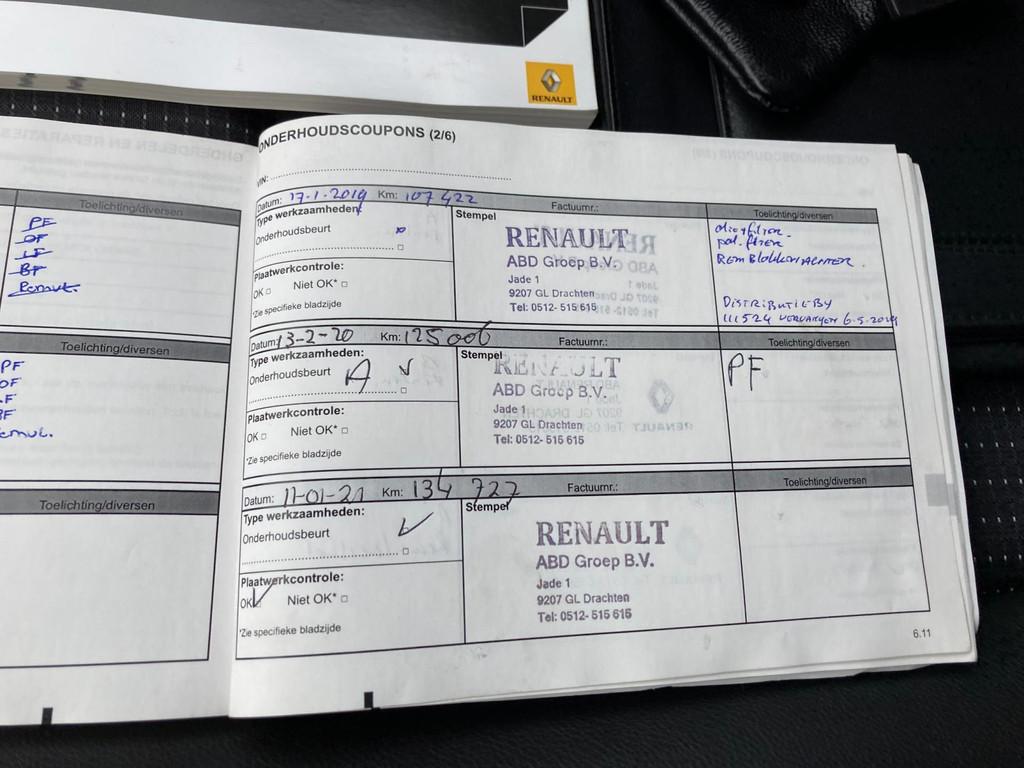 RENAULT
Toelichting/diversen
PF
OF
BF
Toelichting/diversen
PF
OF
Toelichting/diversen
ONDERHOUDSCOUPONS (2/6)
VIN:
Datum: 17-1-2019 Km: 107422 Factuurnr.:
Type werkzaamheden:
Onderhoudsbeurt
Plaatwerkcontrole:
OK □ Niet OK* □
*Zie specifieke bladzijde
Stempel
RENAULT
ABD Groep B.V.
Jade 1
9207 GL Drachten
Tel: 0512- 515 615
Toelichting/diversen
pol. filter
Remblokken achter
Distributie by
111524 vervangen 6-5-2019
Datum: 13-2-20 Km: 125006 Factuurnr.:
Type werkzaamheden:
Onderhoudsbeurt A
Plaatwerkcontrole:
OK □ Niet OK* □
*Zie specifieke bladzijde
Stempel
RENAULT
ABD Groep B.V.
Jade 1
9207 GL Drachten
Tel: 0512- 515 615
Toelichting/diversen
PF
Datum: 11-01-21 Km: 134 727 Factuurnr.:
Type werkzaamheden:
Onderhoudsbeurt
Plaatwerkcontrole:
OK Niet OK* □
*Zie specifieke bladzijde
Stempel
RENAULT
ABD Groep B.V.
Jade 1
9207 GL Drachten
Tel: 0512- 515 615
Toelichting/diversen
6.11